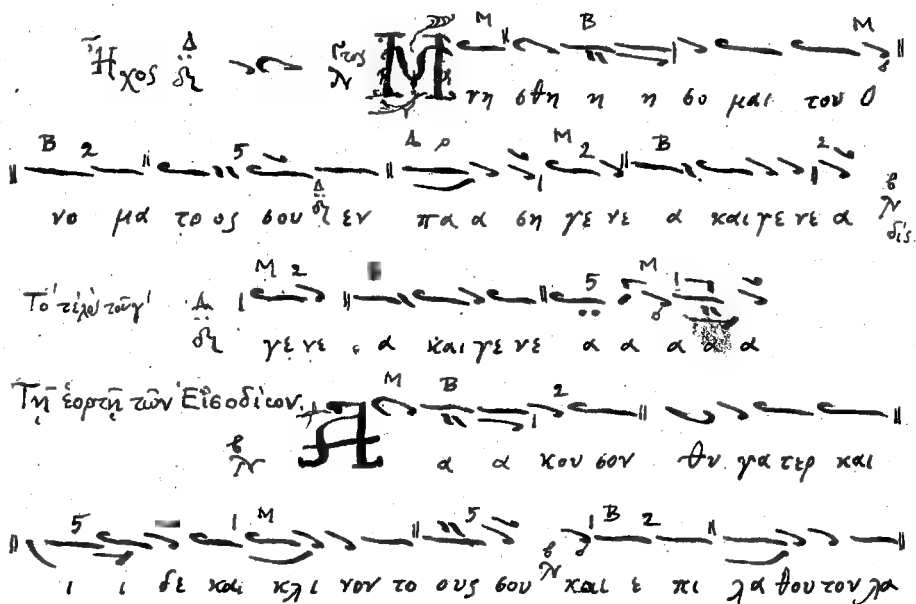 Ἦχος Δ
Μ Β Μ
Μ νη σθη η η σο μαι του ο
Β 2 5 Δ Μ 2 Β 2
νο μα τρ ος σου εν πα α ση γε νε α και γε νε α δίς
Μ 2 5 Μ 1
Τὸ τέλος τοῦ γ' Δ γε νε α και γε νε α α α α α
Τῇ ἑορτῇ τῶν Εἰσοδίων. Μ Β 2
Α α α κου σον θυ γα τερ και
5 1 Μ 5 1 Β 2
ι ι δε και κλι νον το ους σου και ε πι λα θου του λα